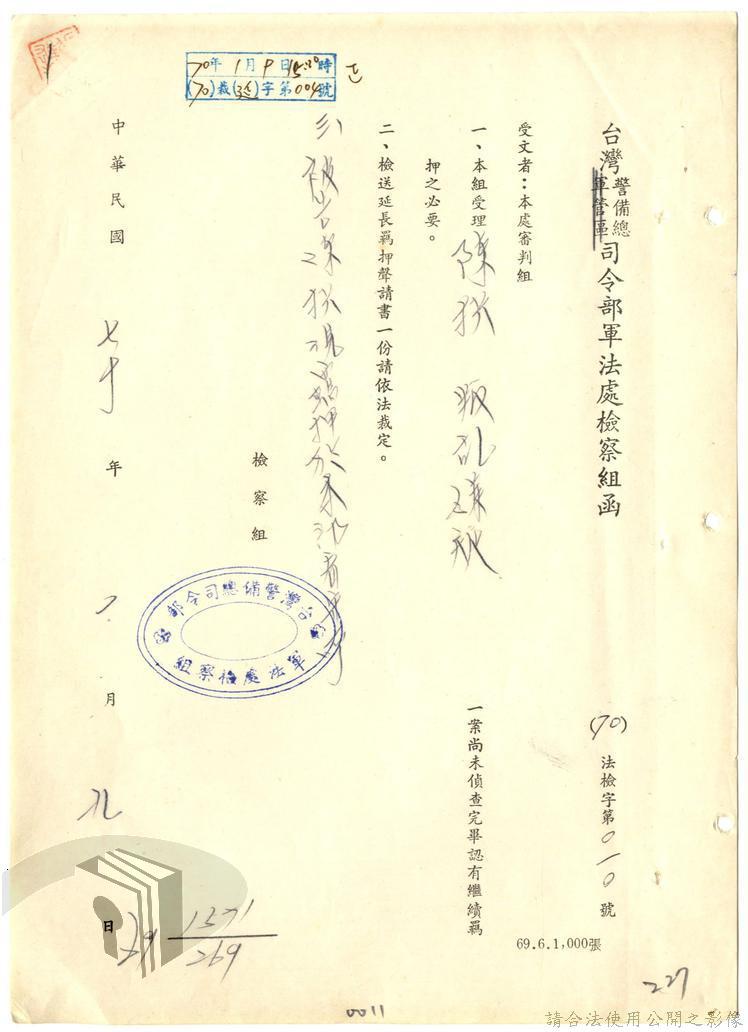 台灣警備總司令部軍法處檢察組函
軍管區
(70)法檢字第010號
受文者：本處審判組
一、本組受理 陳 叛亂嫌疑 一案尚未偵查完畢認有繼續羈
押之必要。
二、檢送延長羈押聲請書一份請依法裁定。
三、被告陳 現羈押於本 看守所
檢察組
台灣警備總司令部
軍法處檢察組
中華民國 七十 年 一 月 九 日
70年1月9日15:30時
(70)裁(延)字第004號
1571
269
69.6.1,000張
227
0011
請合法使用公開之影像